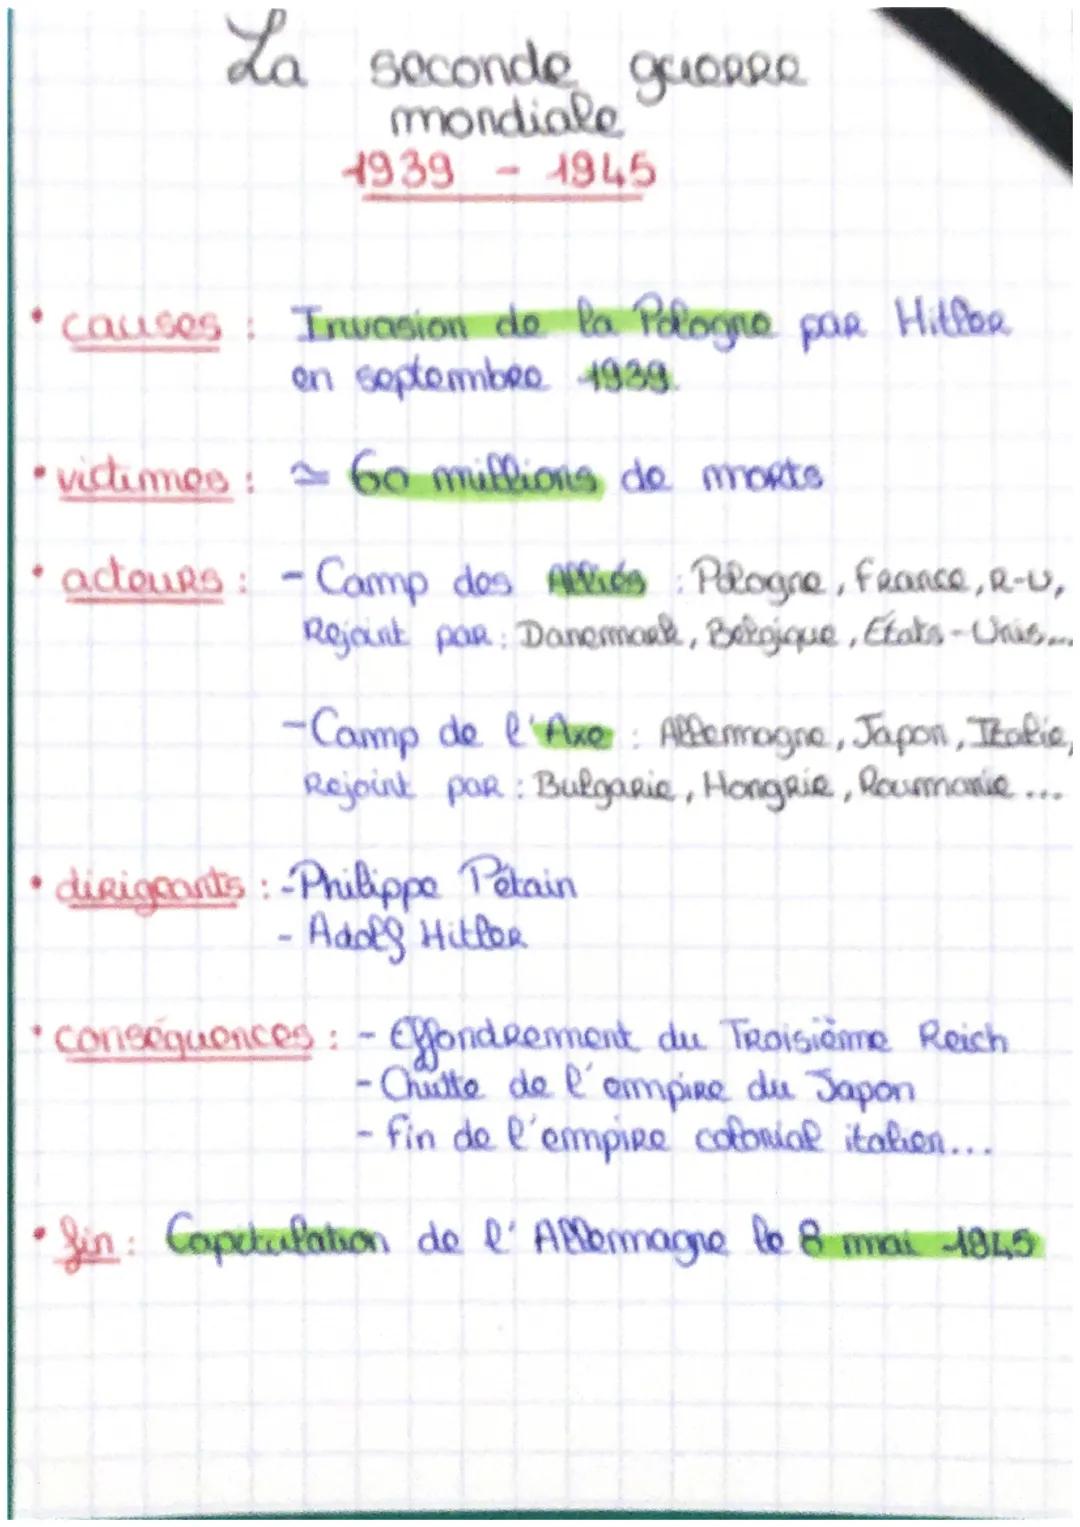 La seconde guerre
mondiale
1939 - 1945
• causes : Invasion de la Pologne par Hitler
en septembre 1939.
• victimes : ≃ 60 millions de morts
• acteurs : - Camp des Alliés : Pologne, France, R-U,
Rejoint par : Danemark, Belgique, États-Unis...
- Camp de l'Axe : Allemagne, Japon, Italie,
Rejoint par : Bulgarie, Hongrie, Roumanie ...
• dirigeants : - Philippe Pétain
- Adolf Hitler
• conséquences : - Effondrement du Troisième Reich
- Chutte de l'empire du Japon
- fin de l'empire colonial italien...
• fin : Capitulation de l'Allemagne le 8 mai 1945